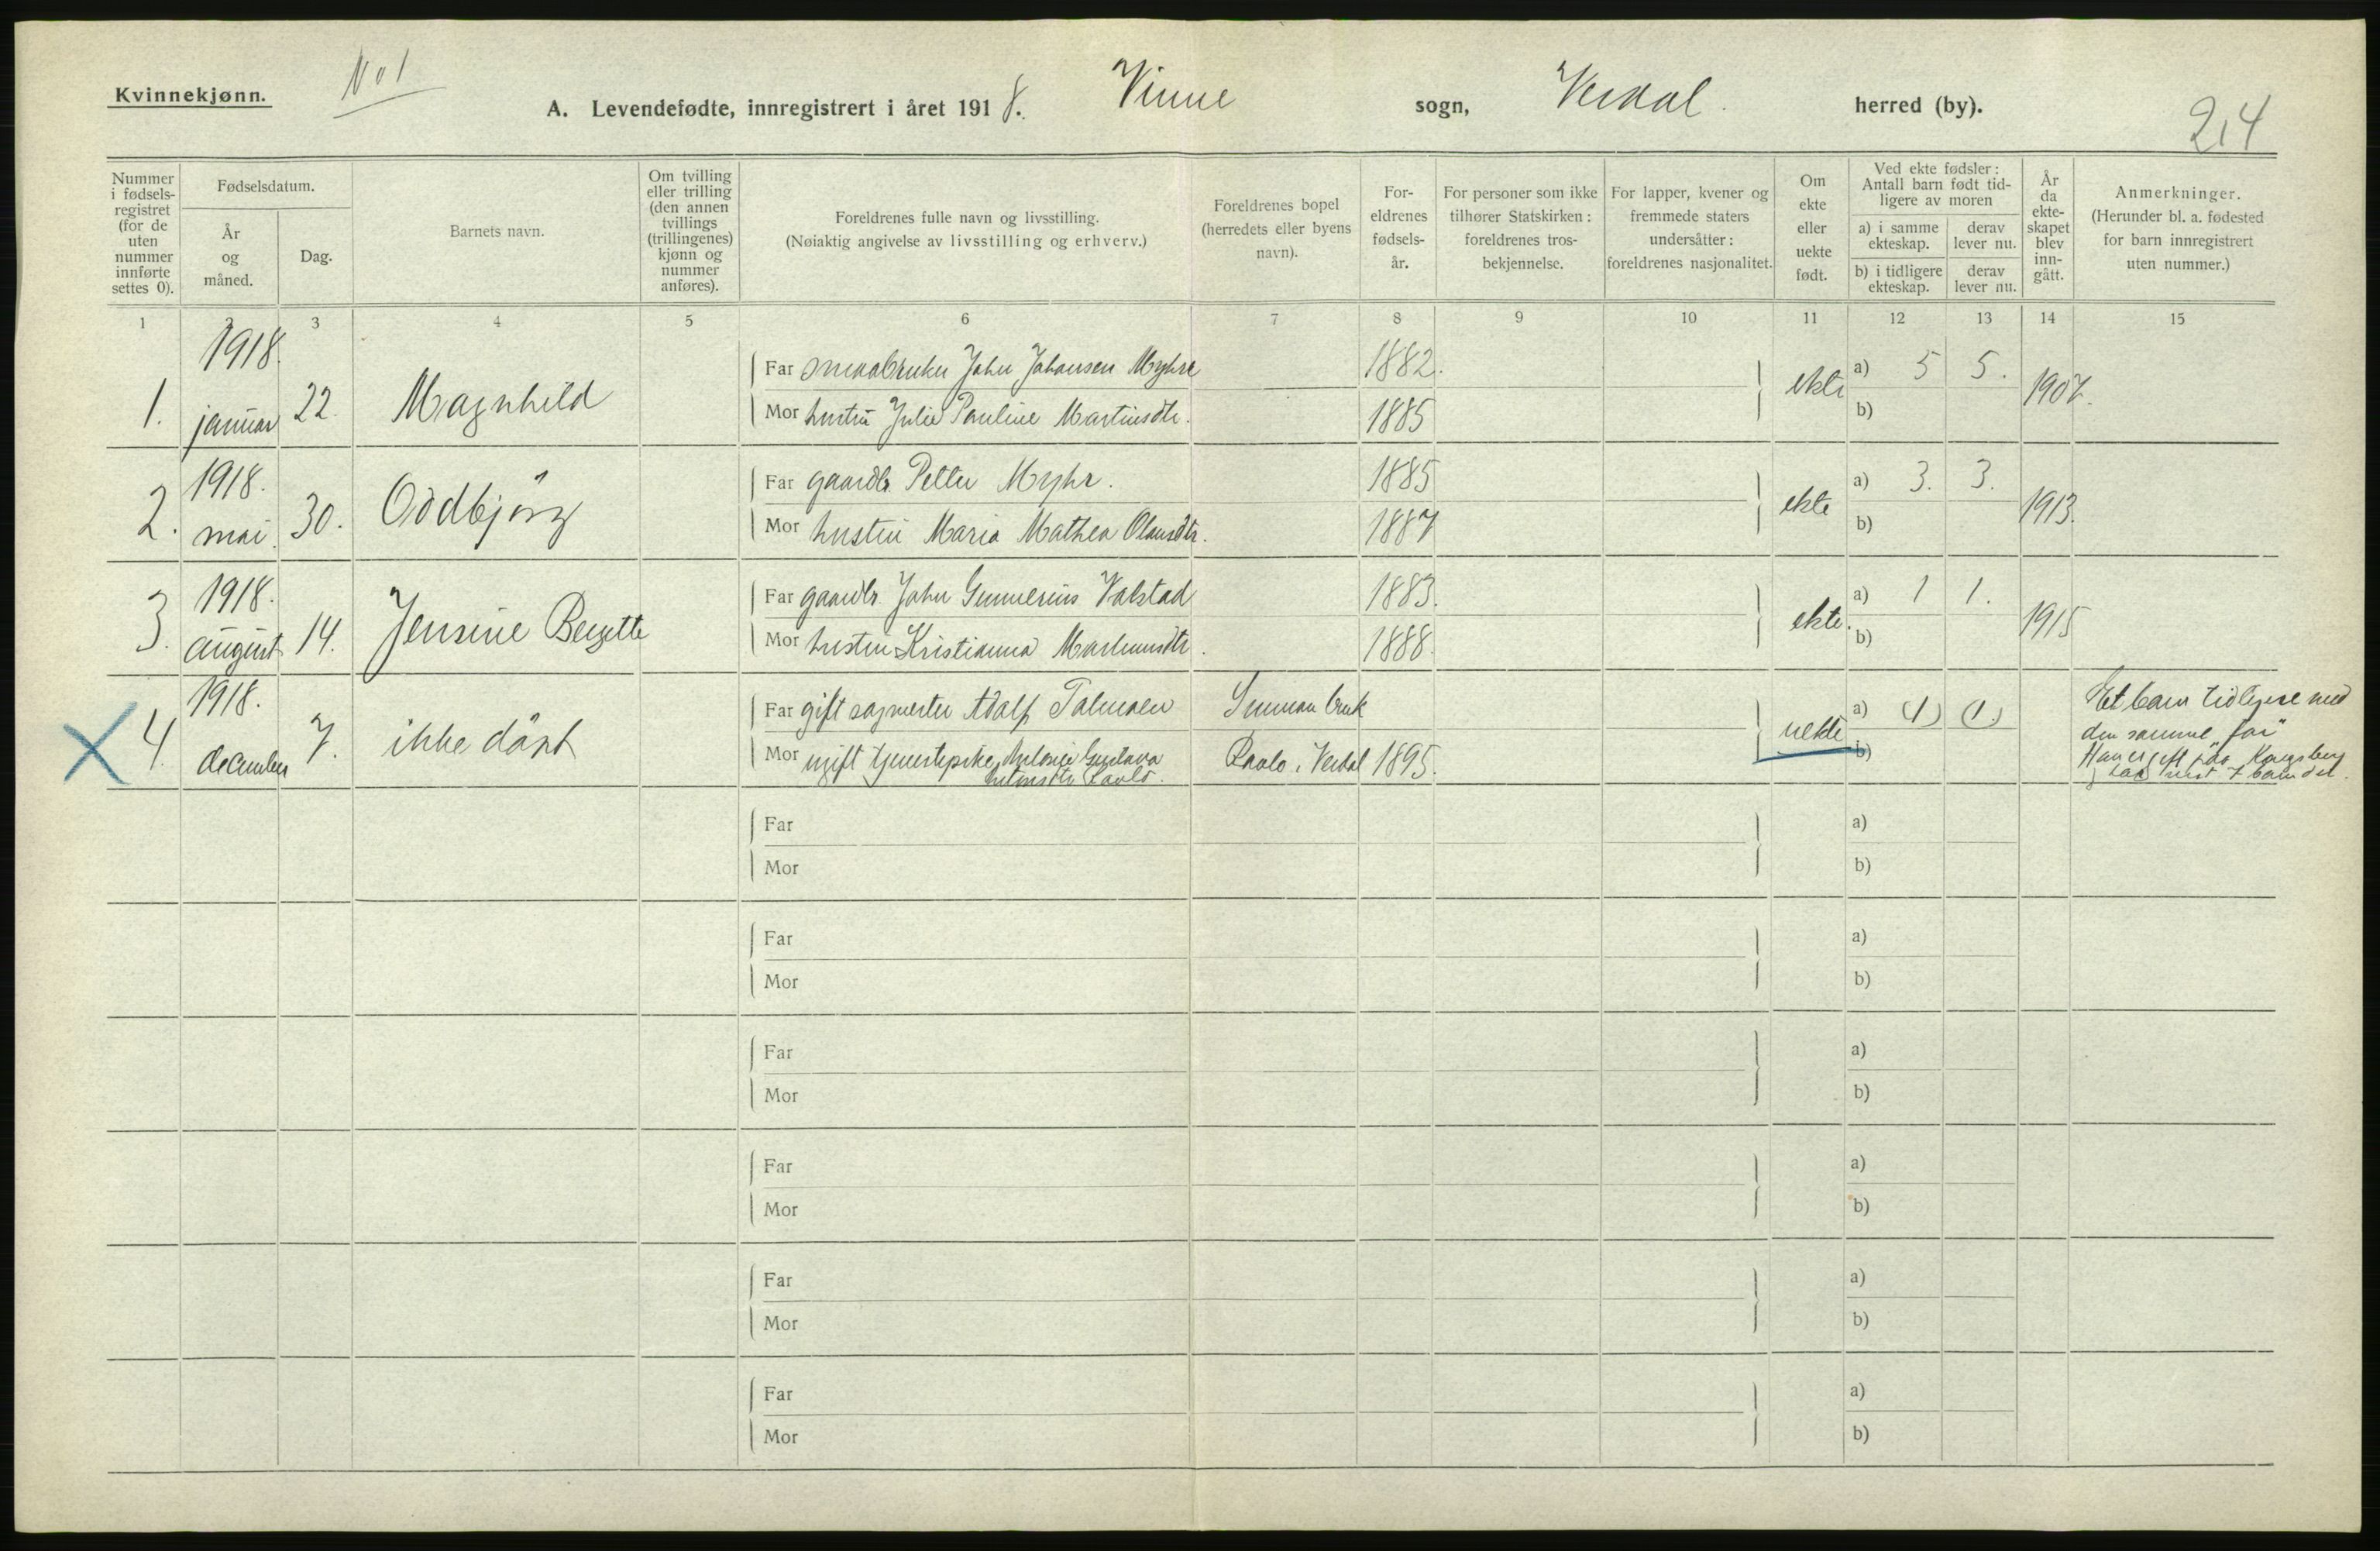 Kvinnekjønn.
No 1
A. Levendefødte, innregistrert i året 1918. Vinne sogn, Verdal. herred (by).
24
Nummer i fødsels-registret (for de uten nummer innførte settes 0).
Fødselsdatum.
År og måned.
Dag.
Barnets navn.
Om tvilling eller trilling (den annen tvillings (trillingenes) kjønn og nummer anføres).
Foreldrenes fulle navn og livsstilling.
(Nøiaktig angivelse av livsstilling og erhverv.)
Foreldrenes bopel (herredets eller byens navn).
For-eldrenes fødsels-år.
For personer som ikke tilhører Statskirken: foreldrenes tros-bekjennelse.
For lapper, kvener og fremmede staters undersåtter: foreldrenes nasjonalitet.
Om ekte eller uekte født.
Ved ekte fødsler: Antall barn født tid-ligere av moren
a) i samme ekteskap.
derav lever nu.
b) i tidligere ekteskap.
derav lever nu.
År da ekte-skapet blev inn-gått.
Anmerkninger.
(Herunder bl. a. fødested for barn innregistrert uten nummer.)
1 2 3 4 5 6 7 8 9 10 11 12 13 14 15
1. 1918. januar 22. Magnhild
Far smaabruker John Johansen Myhre 1882.
Mor hustru Julie Pauline Martinsdtr. 1885
ekte a) 5 5. b) 1907.
2. 1918. mai. 30. Oddbjörg
Far gaardbr. Petter Myhr. 1885
Mor hustru Maria Mathea Olausdtr. 1887
ekte a) 3. 3. b) 1913.
3. 1918. august 14. Jensine Bergette
Far gaardbr. John Gunnerius Valstad 1883.
Mor hustru Kristianna 1888.
ekte. a) 1 1. b) 1915
4. 1918. december 7. ikke döpt
Far gift sagmester Adolf bruk
Mor ugift tjenestepike Antonie Gustava
Verdal 1895.
uekte a) (1) (1.) b)
Et barn tidligere med
den samme "far"
Han er gift paa Kongsberg
7 barn der.
Far
Mor
a)
b)
Far
Mor
a)
b)
Far
Mor
a)
b)
Far
Mor
a)
b)
Far
Mor
a)
b)
Far
Mor
a)
b)